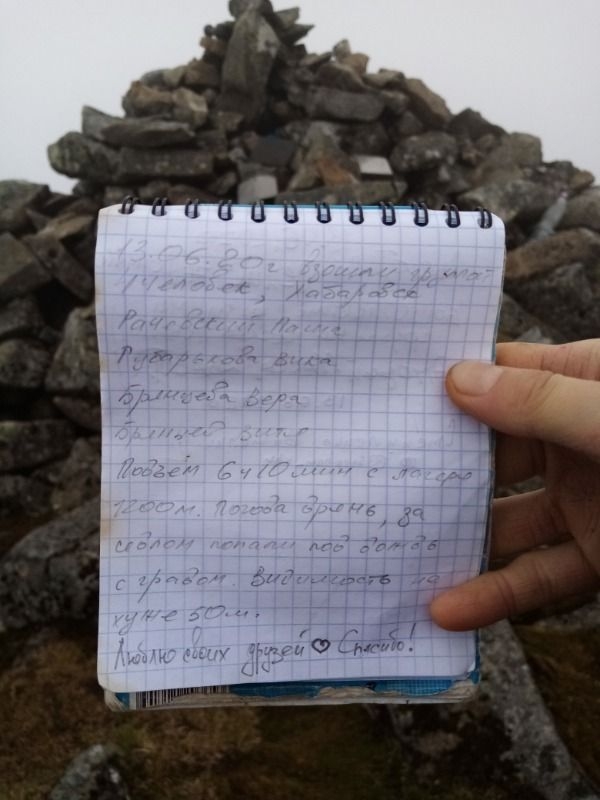 13.06.20г взошли группа
4 человек, Хабаровск
Рачевский Паша
Рубарькова Вика
Брянцева Вера
Брянцев Витя
Подъём 6ч10мин с лагеря
1200м. Погода дрянь, за
седлом попали под дождь
с градом. Видимость не
хуже 50м.
Люблю своих друзей ♥ Спасибо!